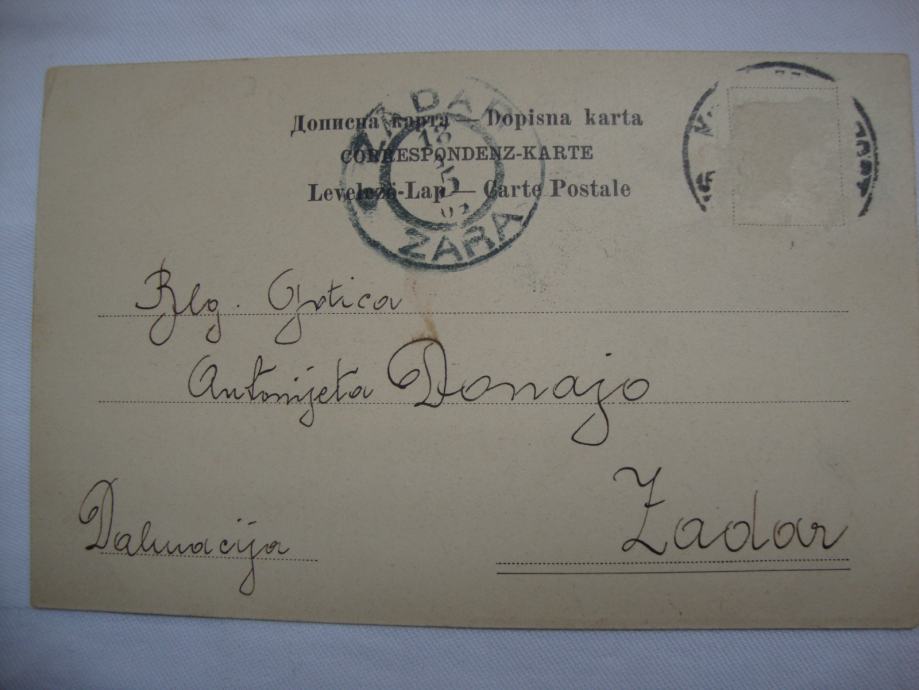 Дописна карта — Dopisna karta
CORRESPONDENZ-KARTE
Levelező-Lap — Carte Postale
ZADAR
18
5
02
ZARA
Blg. Gptica
Antonijeta Donajo
Zadar
Dalmacija